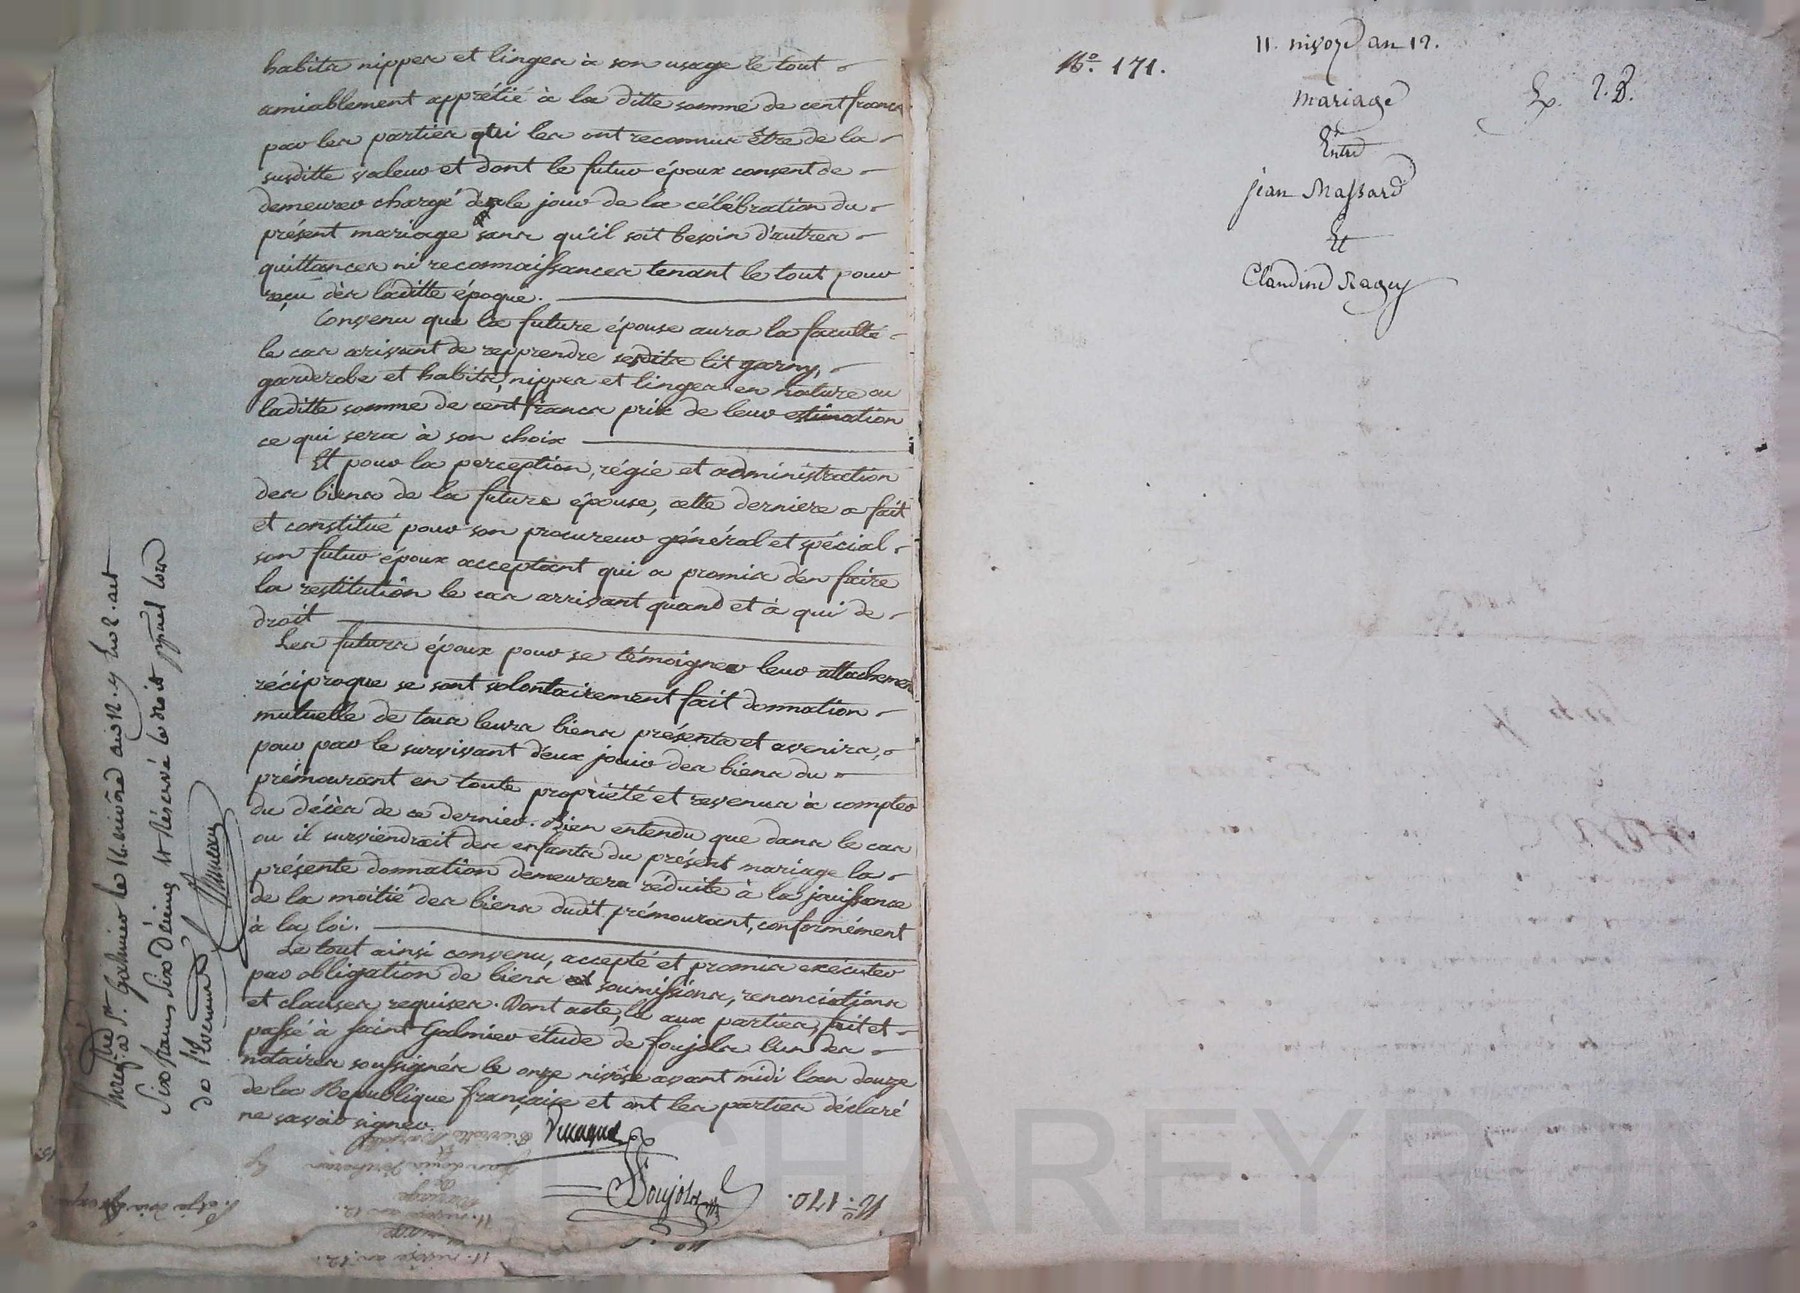 habits nippes et linges à son usage le tout
amiablement apprétié à la ditte somme de cent francs
par les parties qui les ont reconnus être de la
susditte valeur et dont le futur époux consent de
demeurer chargé dès le jour de la célébration du
présent mariage sans qu'il soit besoin d'autres
quittances ni reconnaissances tenant le tout pour
reçu dès laditte époque.
Convenu que la future épouse aura la faculté
le cas arivant de repprendre sesdits lit garny,
garderobe et habits, nippes et linges en nature ou
laditte somme de cent francs prix de leur estimation
ce qui sera à son choix
Et pour la perception, régie et administration
des biens de la future épouse, cette derniere a fait
et constitué pour son procureur général et spécial
son futur époux acceptant qui a promis d'en faire
la restitution le cas arrivant quand et à qui de
droit
Les futurs époux pour se témoigner leur attachement
réciproque se sont volontairement fait donnation
mutuelle de tous leurs biens présents et avenirs,
pour par le survivant d'eux jouir des biens du
prémourant en toute propriété et revenus à compter
du décès de ce dernier. Bien entendu que dans le cas
ou il surviendrait des enfants du présent mariage la
présente donnation demeurera réduite à la jouissance
de la moitié des biens dudit prémourant, conformément
à la loi.
Le tout ainsi convenu, accepté et promis exécuter
par obligation de biens soumissions, renonciations
et clauses requises. Dont acte, lû aux parties, fait et
passé à Saint Galmier étude de Poujols l'un des
notaires soussignés le onze nivôse avant midi l'an douze
de la République française et ont les parties déclaré
ne savoir signer.
Poujols
No. 170.
Enregistré à St. Galmier le 16 nivôse an 12.
six francs six Décimes et Réservé le droit
de l'évènement
No. 171.
11. nivoze an 12.
Mariage
Entre
jean Massard
Et
Claudine Ragey
CHAREYRON